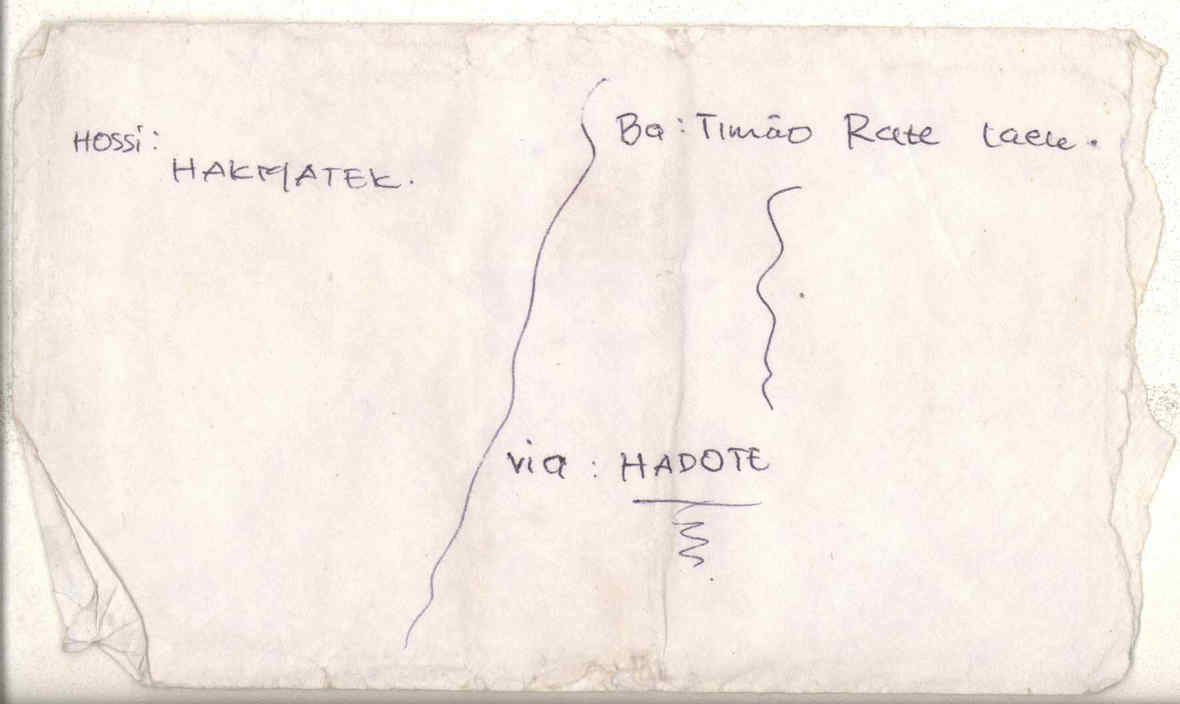 HOSSI:
HAKMATEK.
Ba: Timão Rate Laek.
via: HADOTE